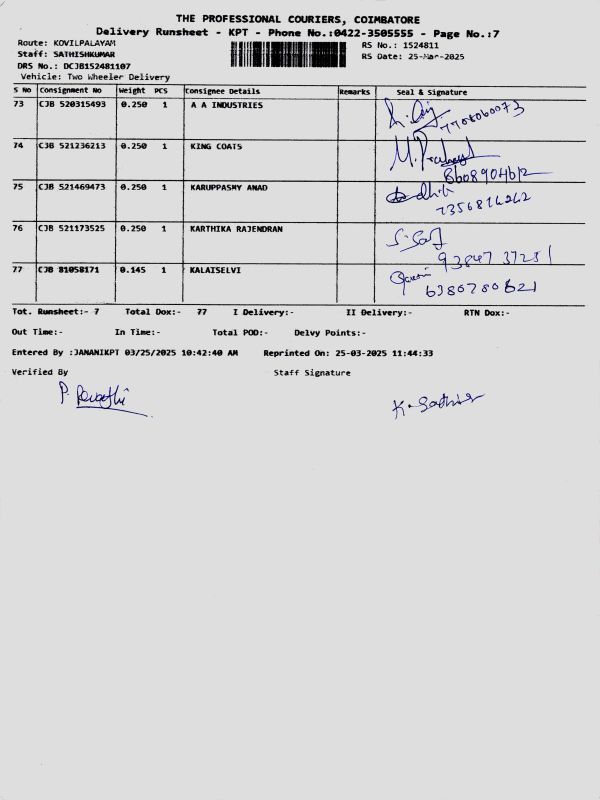 THE PROFESSIONAL COURIERS, COIMBATORE
Delivery Runsheet - KPT - Phone No.:0422-3505555 - Page No.:7
Route: KOVILPALAYAM
Staff: SATHISHKUMAR
DRS No.: DCJB152481107
Vehicle: Two Wheeler Delivery
RS No.: 1524811
RS Date: 25-Mar-2025
S No Consignment No Weight PCS Consignee Details Remarks Seal & Signature
73 CJB 520315493 0.250 1 A A INDUSTRIES
7708060073
74 CJB 521236213 0.250 1 KING COATS
8608904612
75 CJB 521469473 0.250 1 KARUPPASMY ANAD
7356816262
76 CJB 521173525 0.250 1 KARTHIKA RAJENDRAN
9384737231
77 CJB 81058171 0.145 1 KALAISELVI
6380780621
Tot. Runsheet:- 7 Total Dox:- 77 I Delivery:- II Delivery:- RTN Dox:-
Out Time:- In Time:- Total POD:- Delvy Points:-
Entered By :JANANIKPT 03/25/2025 10:42:40 AM Reprinted On: 25-03-2025 11:44:33
Verified By Staff Signature